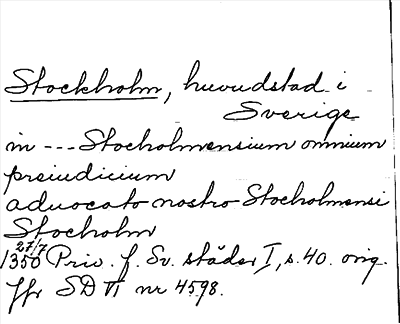 Stockholm, huvudstad i
Sverige
in --- Stocholmensium omnium
preiudicium
aduocato nostro Stocholmensi
Stocholm
27/7
1350 Priv. f. Sv. städer I, s. 40. orig.
Jfr SD VI nr 4598.